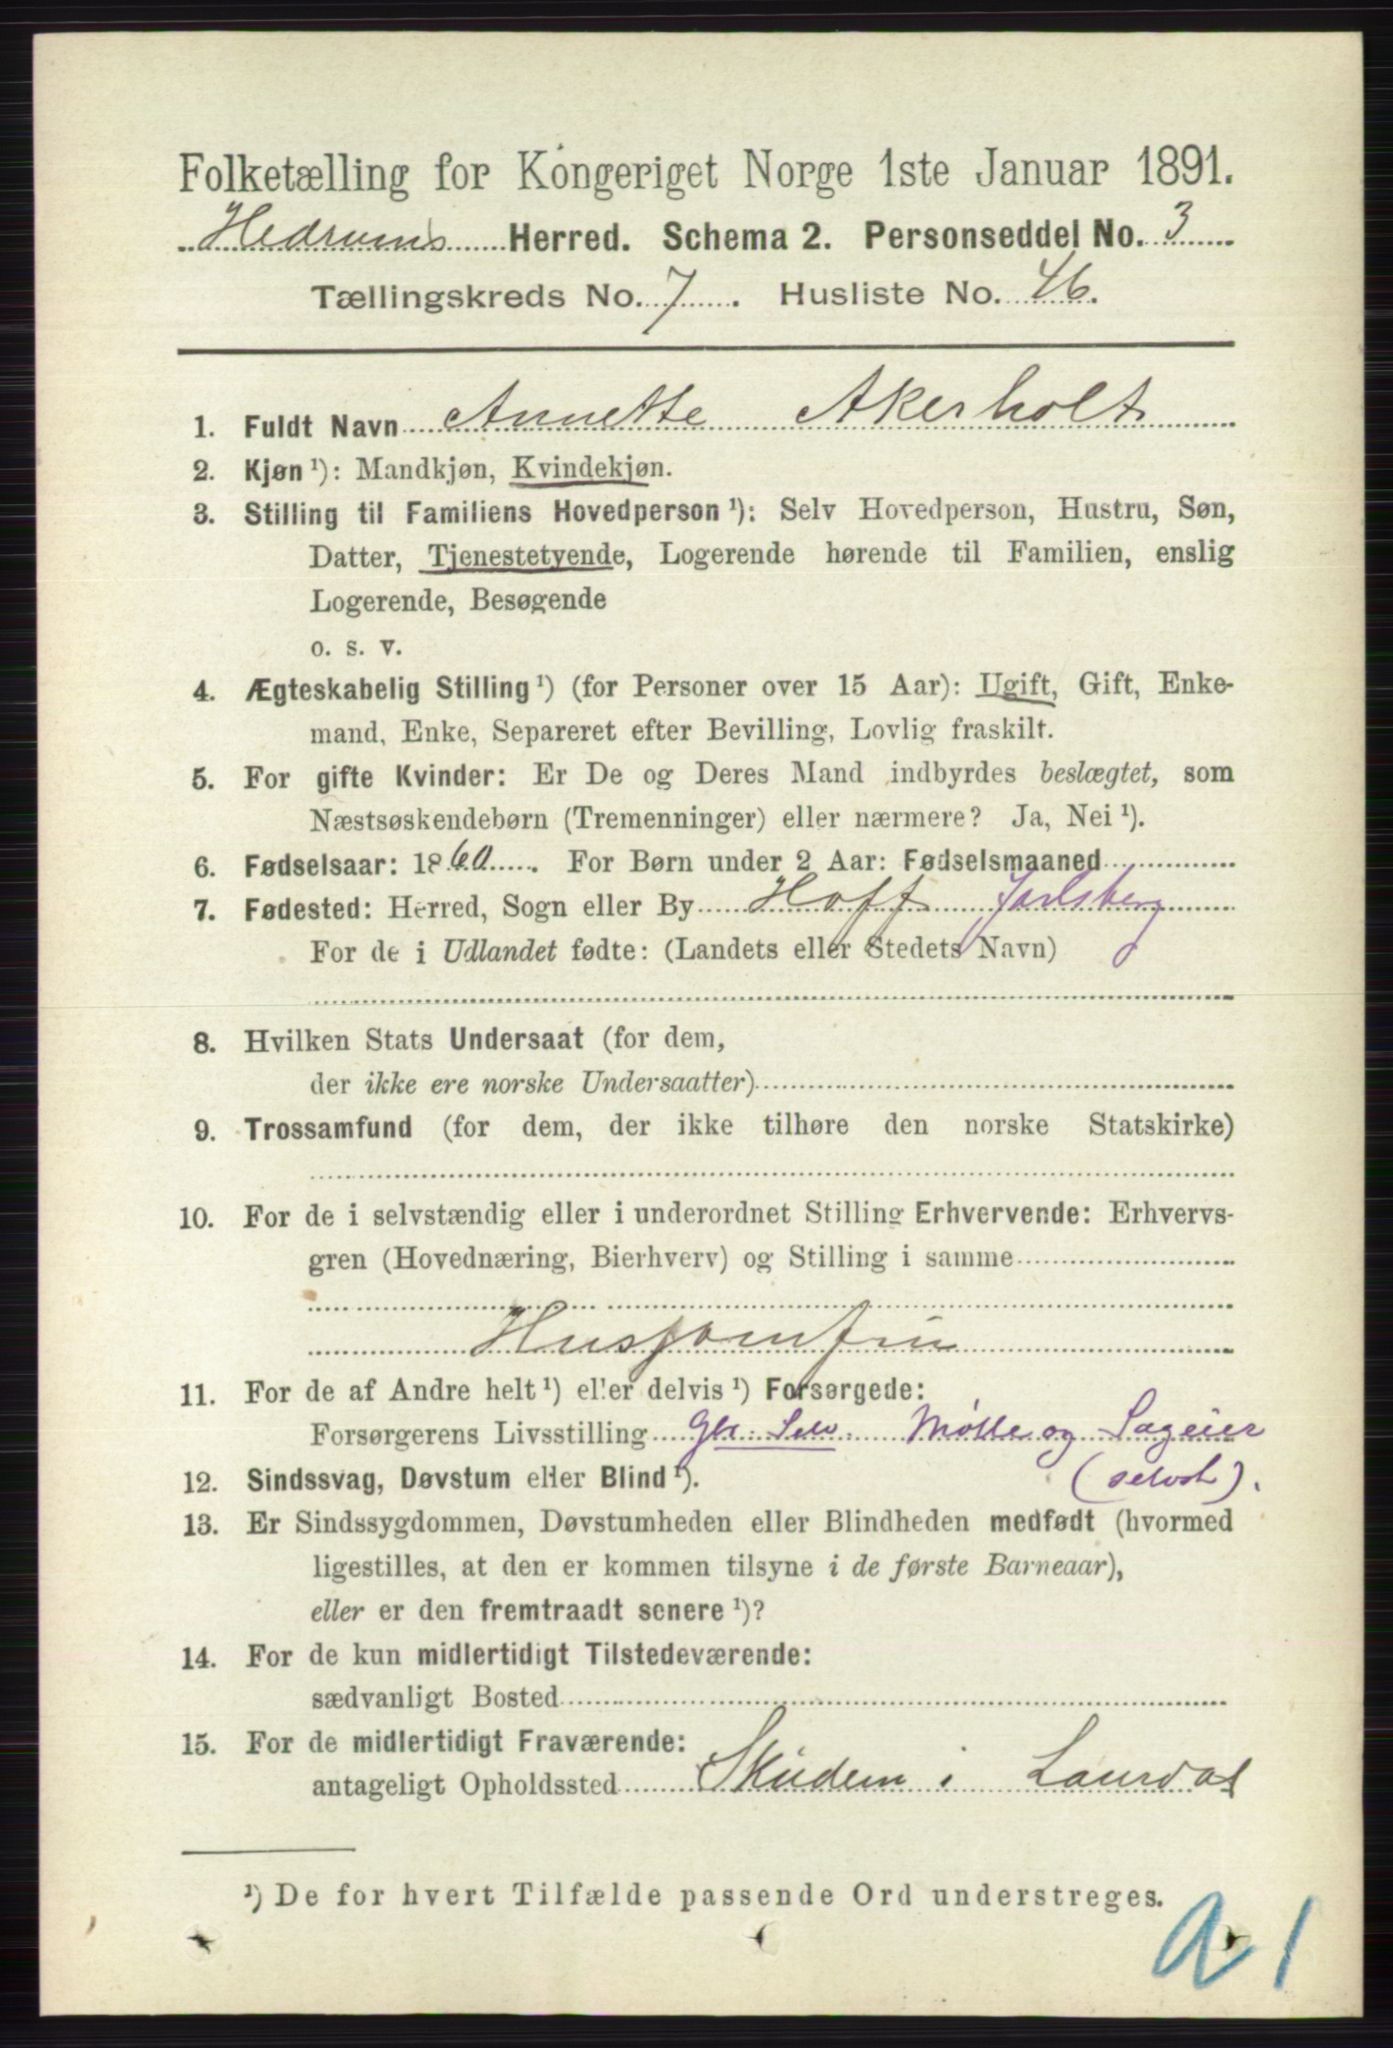 Folketælling for Kongeriget Norge 1ste Januar 1891.
Hedrums Herred. Schema 2. Personseddel No. 3
Tællingskreds No. 7. Husliste No. 46.
1. Fuldt Navn Annette Akerholt
2. Kjøn ¹): Mandkjøn, Kvindekjøn.
3. Stilling til Familiens Hovedperson ¹): Selv Hovedperson, Hustru, Søn,
Datter, Tjenestetyende, Logerende hørende til Familien, enslig
Logerende, Besøgende
o. s. v.
4. Ægteskabelig Stilling ¹) (for Personer over 15 Aar): Ugift, Gift, Enke-
mand, Enke, Separeret efter Bevilling, Lovlig fraskilt.
5. For gifte Kvinder: Er De og Deres Mand indbyrdes beslægtet, som
Næstsøskendebørn (Tremenninger) eller nærmere? Ja, Nei ¹).
6. Fødselsaar: 1860. For Børn under 2 Aar: Fødselsmaaned
7. Fødested: Herred, Sogn eller By Hoff Jarlsberg
For de i Udlandet fødte: (Landets eller Stedets Navn)
8. Hvilken Stats Undersaat (for dem,
der ikke ere norske Undersaatter)
9. Trossamfund (for dem, der ikke tilhøre den norske Statskirke)
10. For de i selvstændig eller i underordnet Stilling Erhvervende: Erhvervs-
gren (Hovednæring, Bierhverv) og Stilling i samme
Husjomfru
11. For de af Andre helt ¹) eller delvis ¹) Forsørgede:
Forsørgerens Livsstilling Selv. Mølle og Sageier
12. Sindssvag, Døvstum eller Blind ¹). (selvst).
13. Er Sindssygdommen, Døvstumheden eller Blindheden medfødt (hvormed
ligestilles, at den er kommen tilsyne i de første Barneaar),
eller er den fremtraadt senere ¹)?
14. For de kun midlertidigt Tilstedeværende:
sædvanligt Bosted
15. For de midlertidigt Fraværende:
antageligt Opholdssted Skúdem i Laurdal
¹) De for hvert Tilfælde passende Ord understreges.